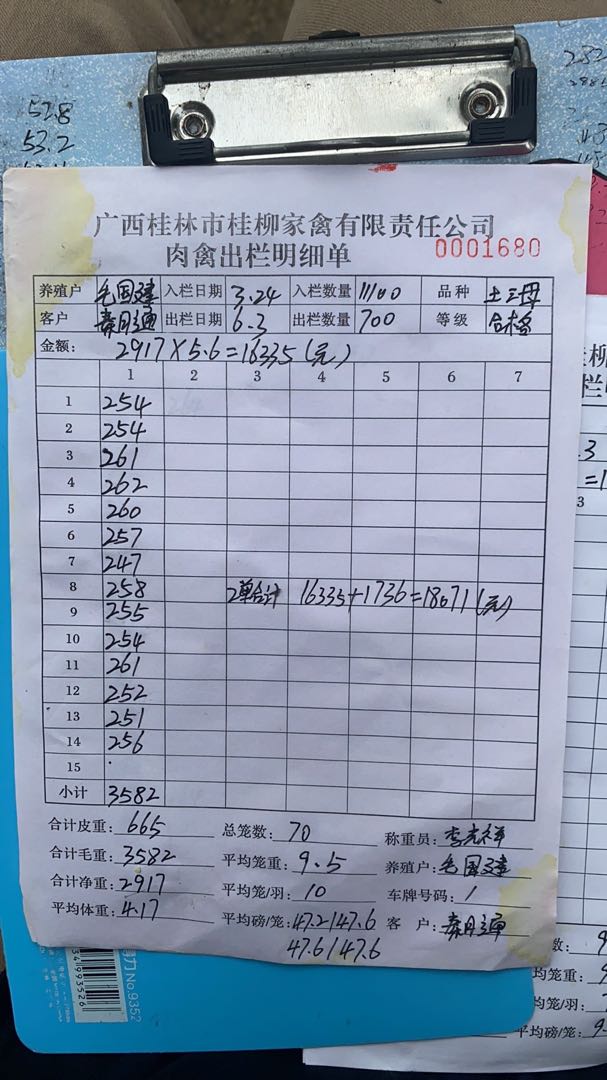 52.8
53.2
广西桂林市桂柳家禽有限责任公司
肉禽出栏明细单 0001680
养殖户 毛国建 入栏日期 3.24 入栏数量 11100 品种 土三母
客户 秦月通 出栏日期 6.3 出栏数量 700 等级 合格
金额: 2917×5.6=16335(元)
1 2 3 4 5 6 7
1 254
2 254
3 261
4 262
5 260
6 257
7 247
8 258 2单合计 16335+1736=18071(元)
9 255
10 254
11 261
12 252
13 251
14 256
15
小计 3582
合计皮重: 665 总笼数: 70 称重员: 李光祥
合计毛重: 3582 平均笼重: 9.5 养殖户: 毛国建
合计净重: 2917 平均笼/羽: 10 车牌号码: /
平均体重: 4.17 平均磅/笼: 47.2/47.6 客户: 秦月通
47.6/47.6
No.9352
34993526
数: 9
均笼重: 9
均笼/羽:
平均磅/笼: